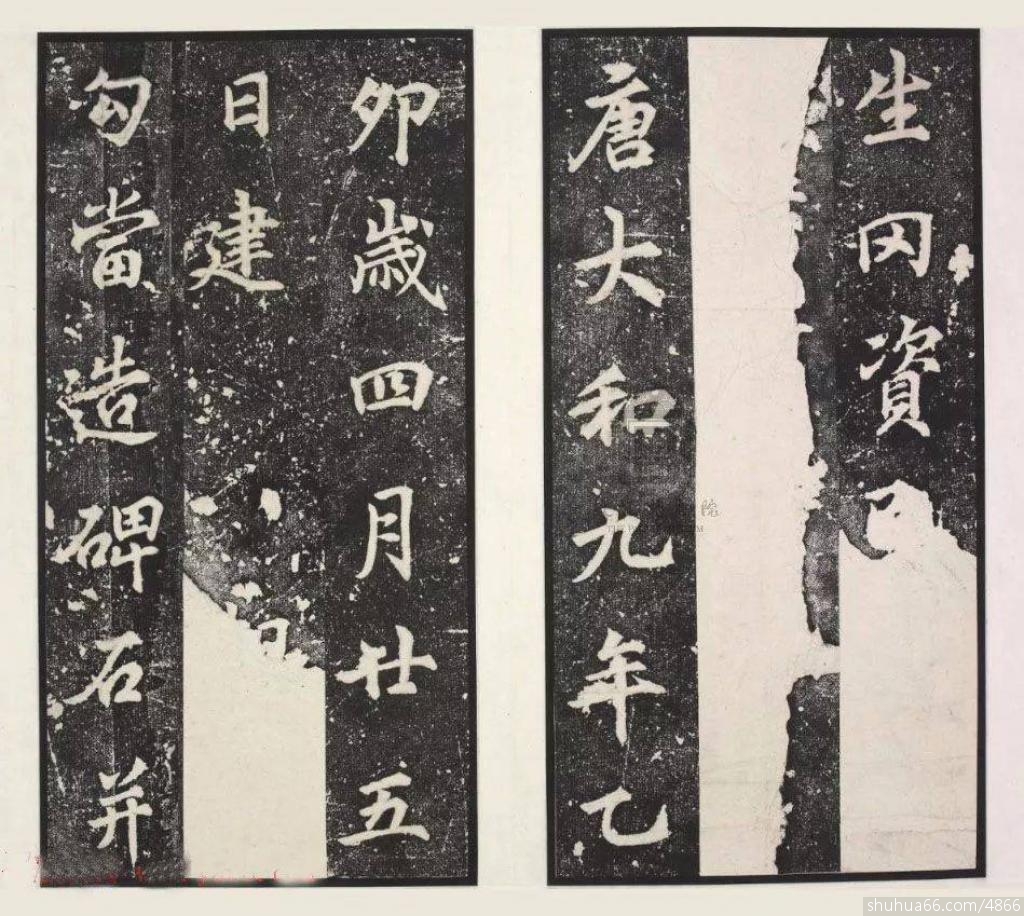 生因資
唐大和九年乙
卯歲四月廿五
日建
勾當造碑石并
shuhua66.com/4866